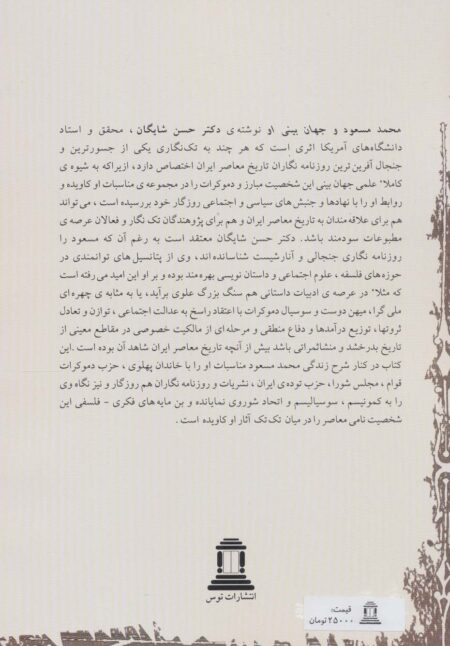 محمد مسعود و جهان بینی او نوشته‌ی دکتر حسن شایگان ، محقق و استاد
دانشگاه‌های آمریکا اثری است که هر چند به تک‌نگاری یکی از جسورترین و
جنجال آفرین ترین روزنامه نگاران تاریخ معاصر ایران اختصاص دارد ، ازیراکه به شیوه ی
کاملاً علمی جهان بینی این شخصیت مبارز و دموکرات را در مجموعه ی مناسبات او کاویده و
روابط او را با نهادها و جنبش های سیاسی و اجتماعی روزگار خود بررسیده است ، می تواند
هم برای علاقه مندان به تاریخ معاصر ایران و هم برای پژوهندگان تک نگار و فعالان عرصه ی
مطبوعات سودمند باشد. دکتر حسن شایگان معتقد است به رغم آن که مسعود را
روزنامه نگاری جنجالی و آنارشیست شناسانده‌اند ، وی از پتانسیل‌های توانمندی در
حوزه‌های فلسفه ، علوم اجتماعی و داستان نویسی بهره‌مند بوده و بر او این امید می رفته است
که مثلاً در عرصه ی ادبیات داستانی هم سنگ بزرگ علوی برآید، یا به مثابه ی چهره‌ای
ملی گرا، میهن دوست و سوسیال دموکرات با اعتقاد راسخ به عدالت اجتماعی ، توازن و تعادل
ثروتها، توزیع درآمدها و دفاع منطقی و مرحله‌ای از مالکیت خصوصی در مقاطع معینی از
تاریخ بدرخشد و منشاثمراتی باشد بیش از آنچه تاریخ معاصر ایران شاهد آن بوده است .این
کتاب در کنار شرح زندگی محمد مسعود مناسبات او را با خاندان پهلوی ، حزب دموکرات
قوام ، مجلس شورا، حزب توده‌ی ایران ، نشریات و روزنامه نگاران هم روزگار و نیز نگاه وی
را به کمونیسم ، سوسیالیسم و اتحاد شوروی نمایانده و بن مایه‌های فکری - فلسفی این
شخصیت نامی معاصر را در میان تک تک آثار او کاویده است .
انتشارات توس
قیمت:
۲۵۰۰۰ تومان